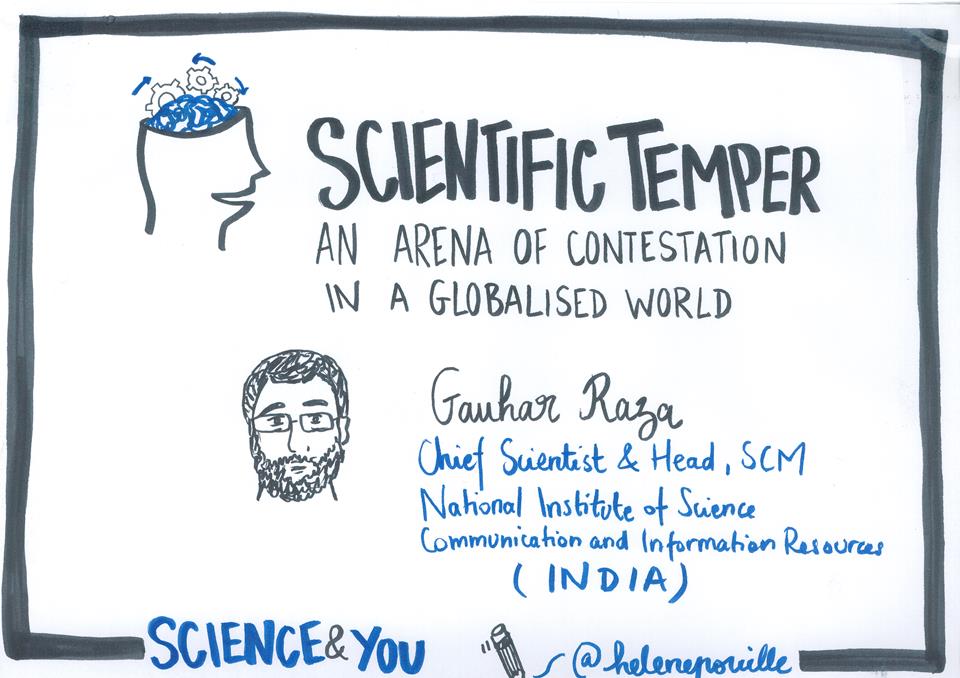 SCIENTIFIC TEMPER
AN ARENA OF CONTESTATION
IN A GLOBALISED WORLD
Gauhar Raza
Chief Scientist & Head, SCM
National Institute of Science
Communication and Information Resources
(INDIA)
SCIENCE & YOU
@helenepouille